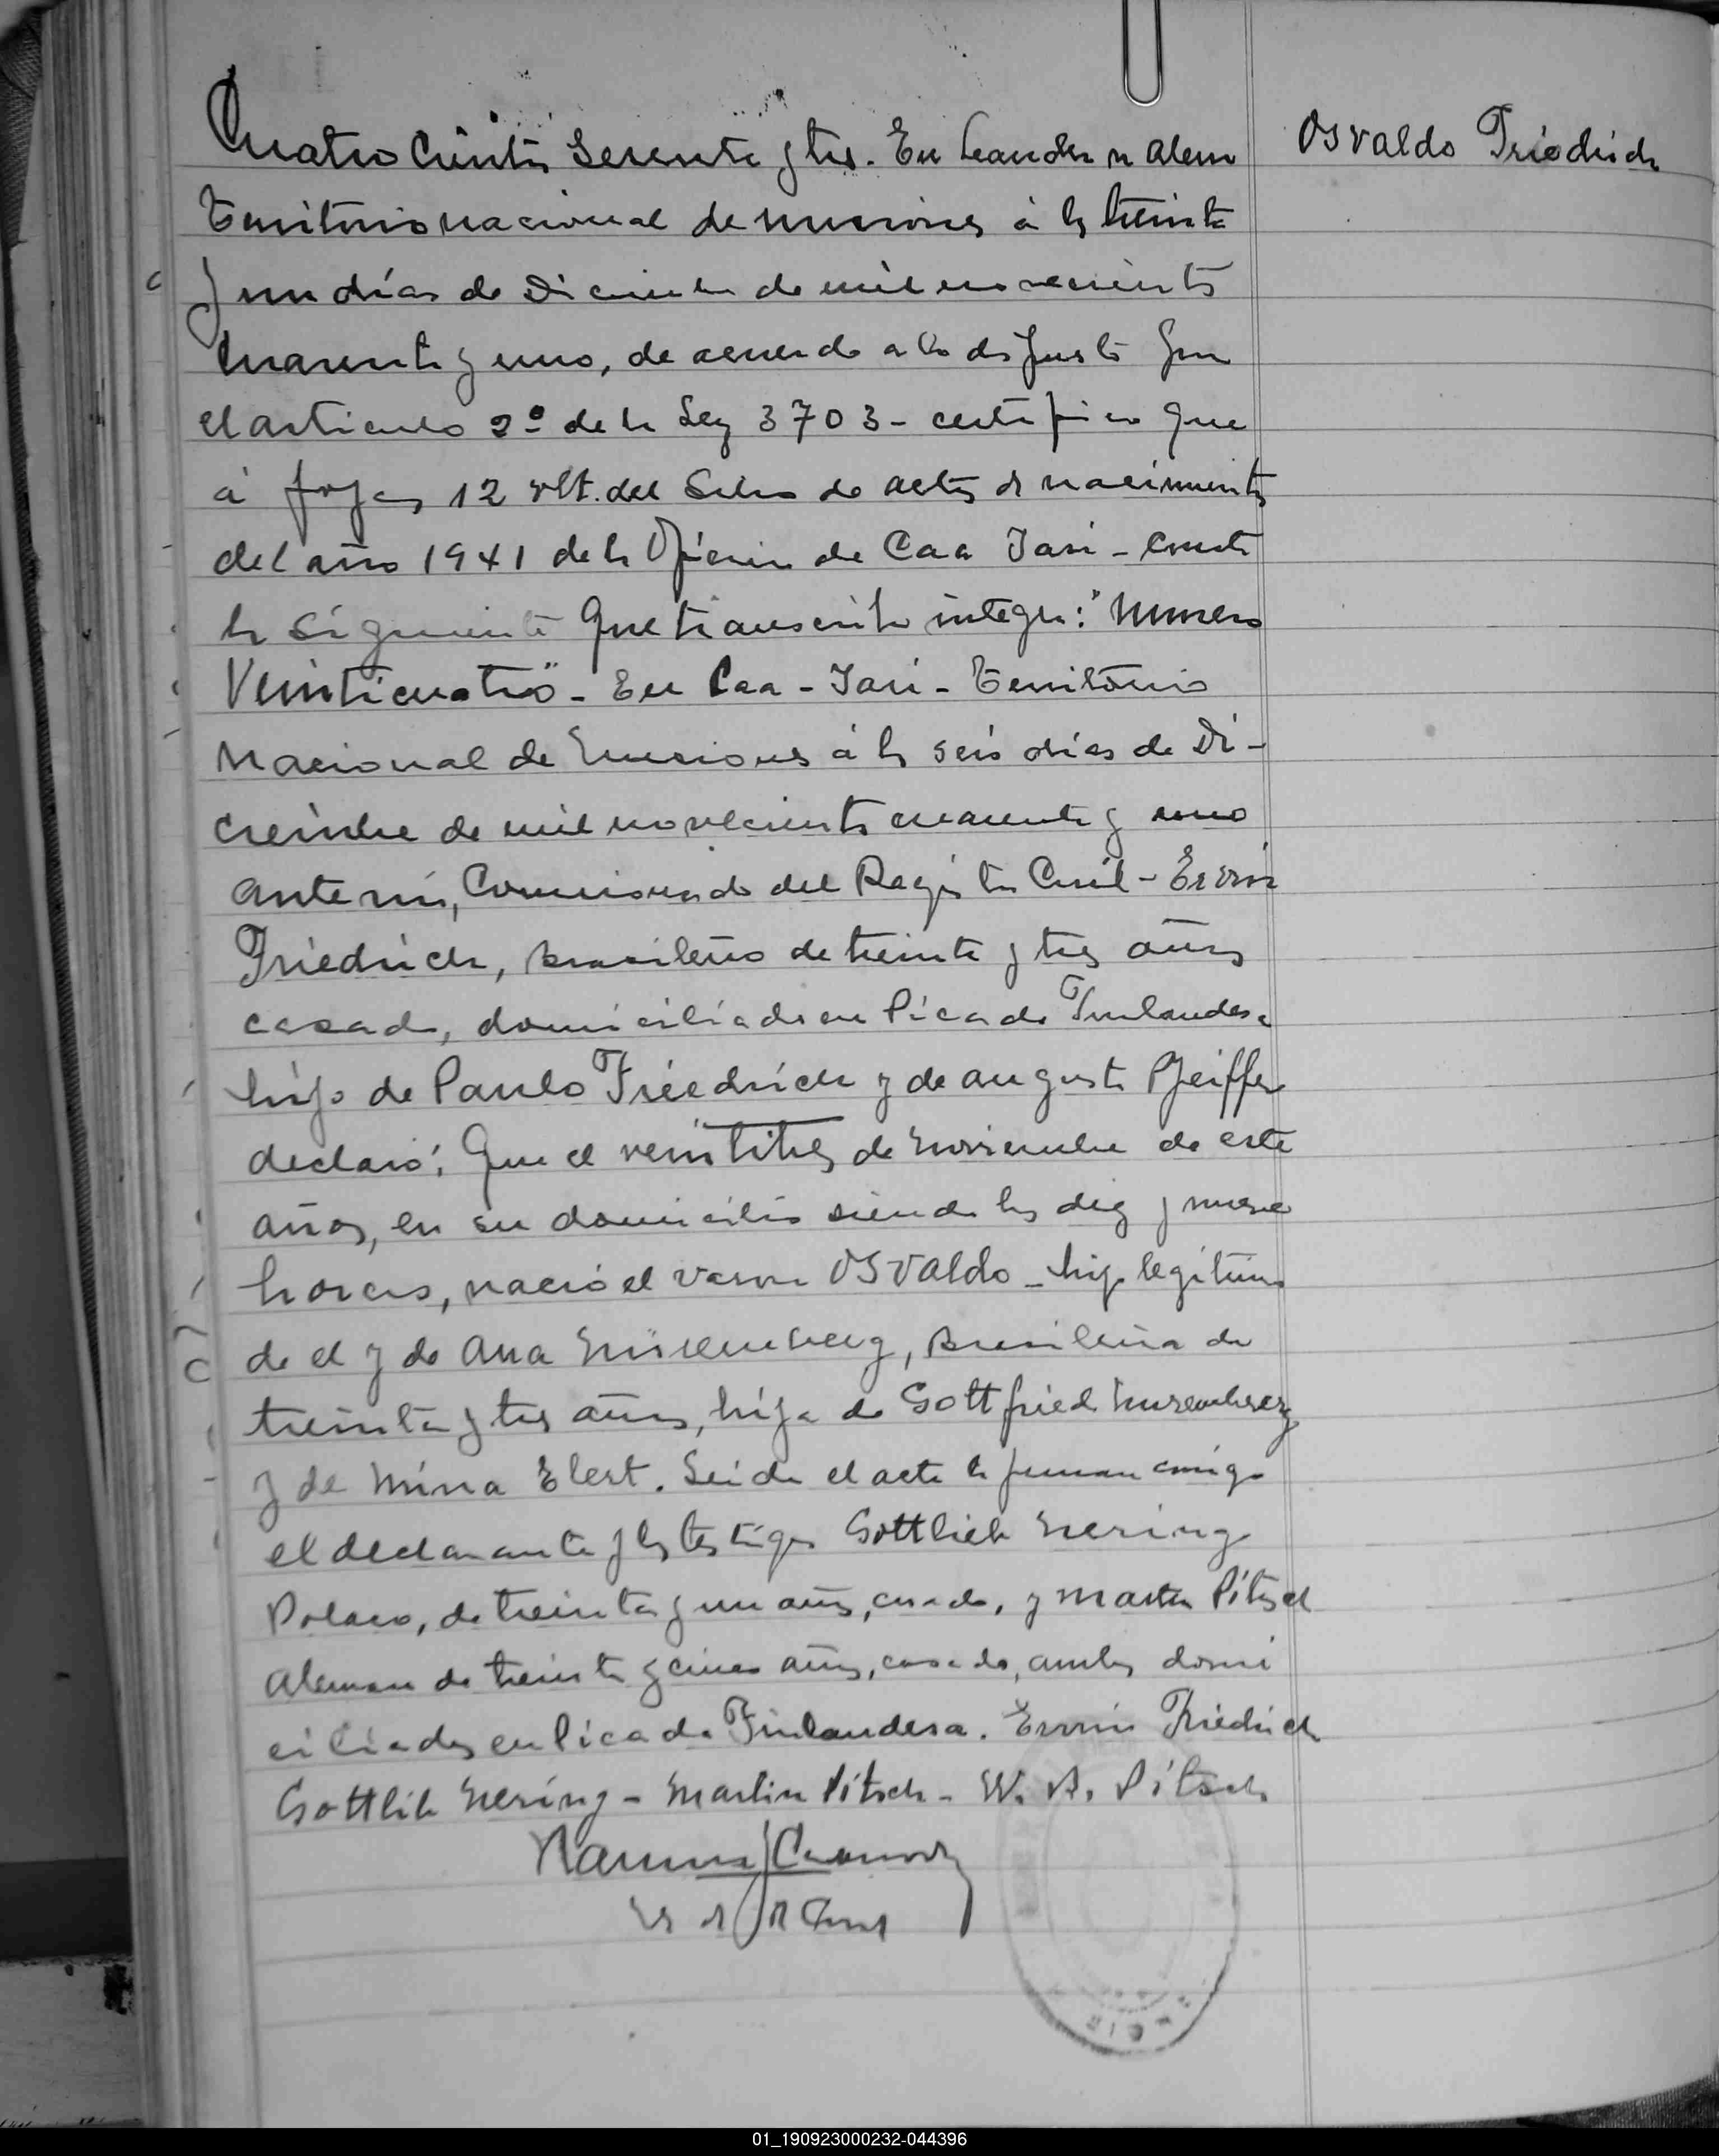 Cuatro cientos sesenta y tres. En Leandro n Alem
Osvaldo Friedrich
Territorio nacional de misiones á los treinta
y un días de Diciembre de mil novecientos
cuarenta y uno, de acuerdo a lo dispuesto por
el articulo 2º de la Ley 3703 - certifico que
á fojas 12 vlt. del Libro de actas de nacimientos
del año 1941 de la Oficina de Caa Yari - consta
la siguiente que transcrito integro: "Numero
Veinticuatro" - En Caa - Yari - Territorio
Nacional de Misiones á los seis días de Di-
ciembre de mil novecientos cuarenta y uno
ante mi, Comisionado del Registro Civil - Erwin
Friedrich, Brasileño de treinta y tres años
casado, domiciliado en Picada Finlandesa
hijo de Paulo Friedrich y de Augusta Pfeiffer
declaró: Que el veintitres de Noviembre de este
años, en su domicilio siendo las diez y nueve
horas, nació el varon OSVALDO - hijo legitimo
de el y de Ana Nuremberg, Brasileña de
treinta y tres años, hija de Gottfried Nuremberg
y de Mina Elert. Leida el acta la firman conmigo
el declarante y los testigos Gottlieb Nering
Polaco, de treinta y un años, casado, y Martin Pitsch
Aleman de treinta y cinco años, casado, ambos domi
ciliados en Picada Finlandesa. Erwin Friedrich
Gottlib Nering - Martin Pitsch - W. A. Pitsch
01_190923000232-044396